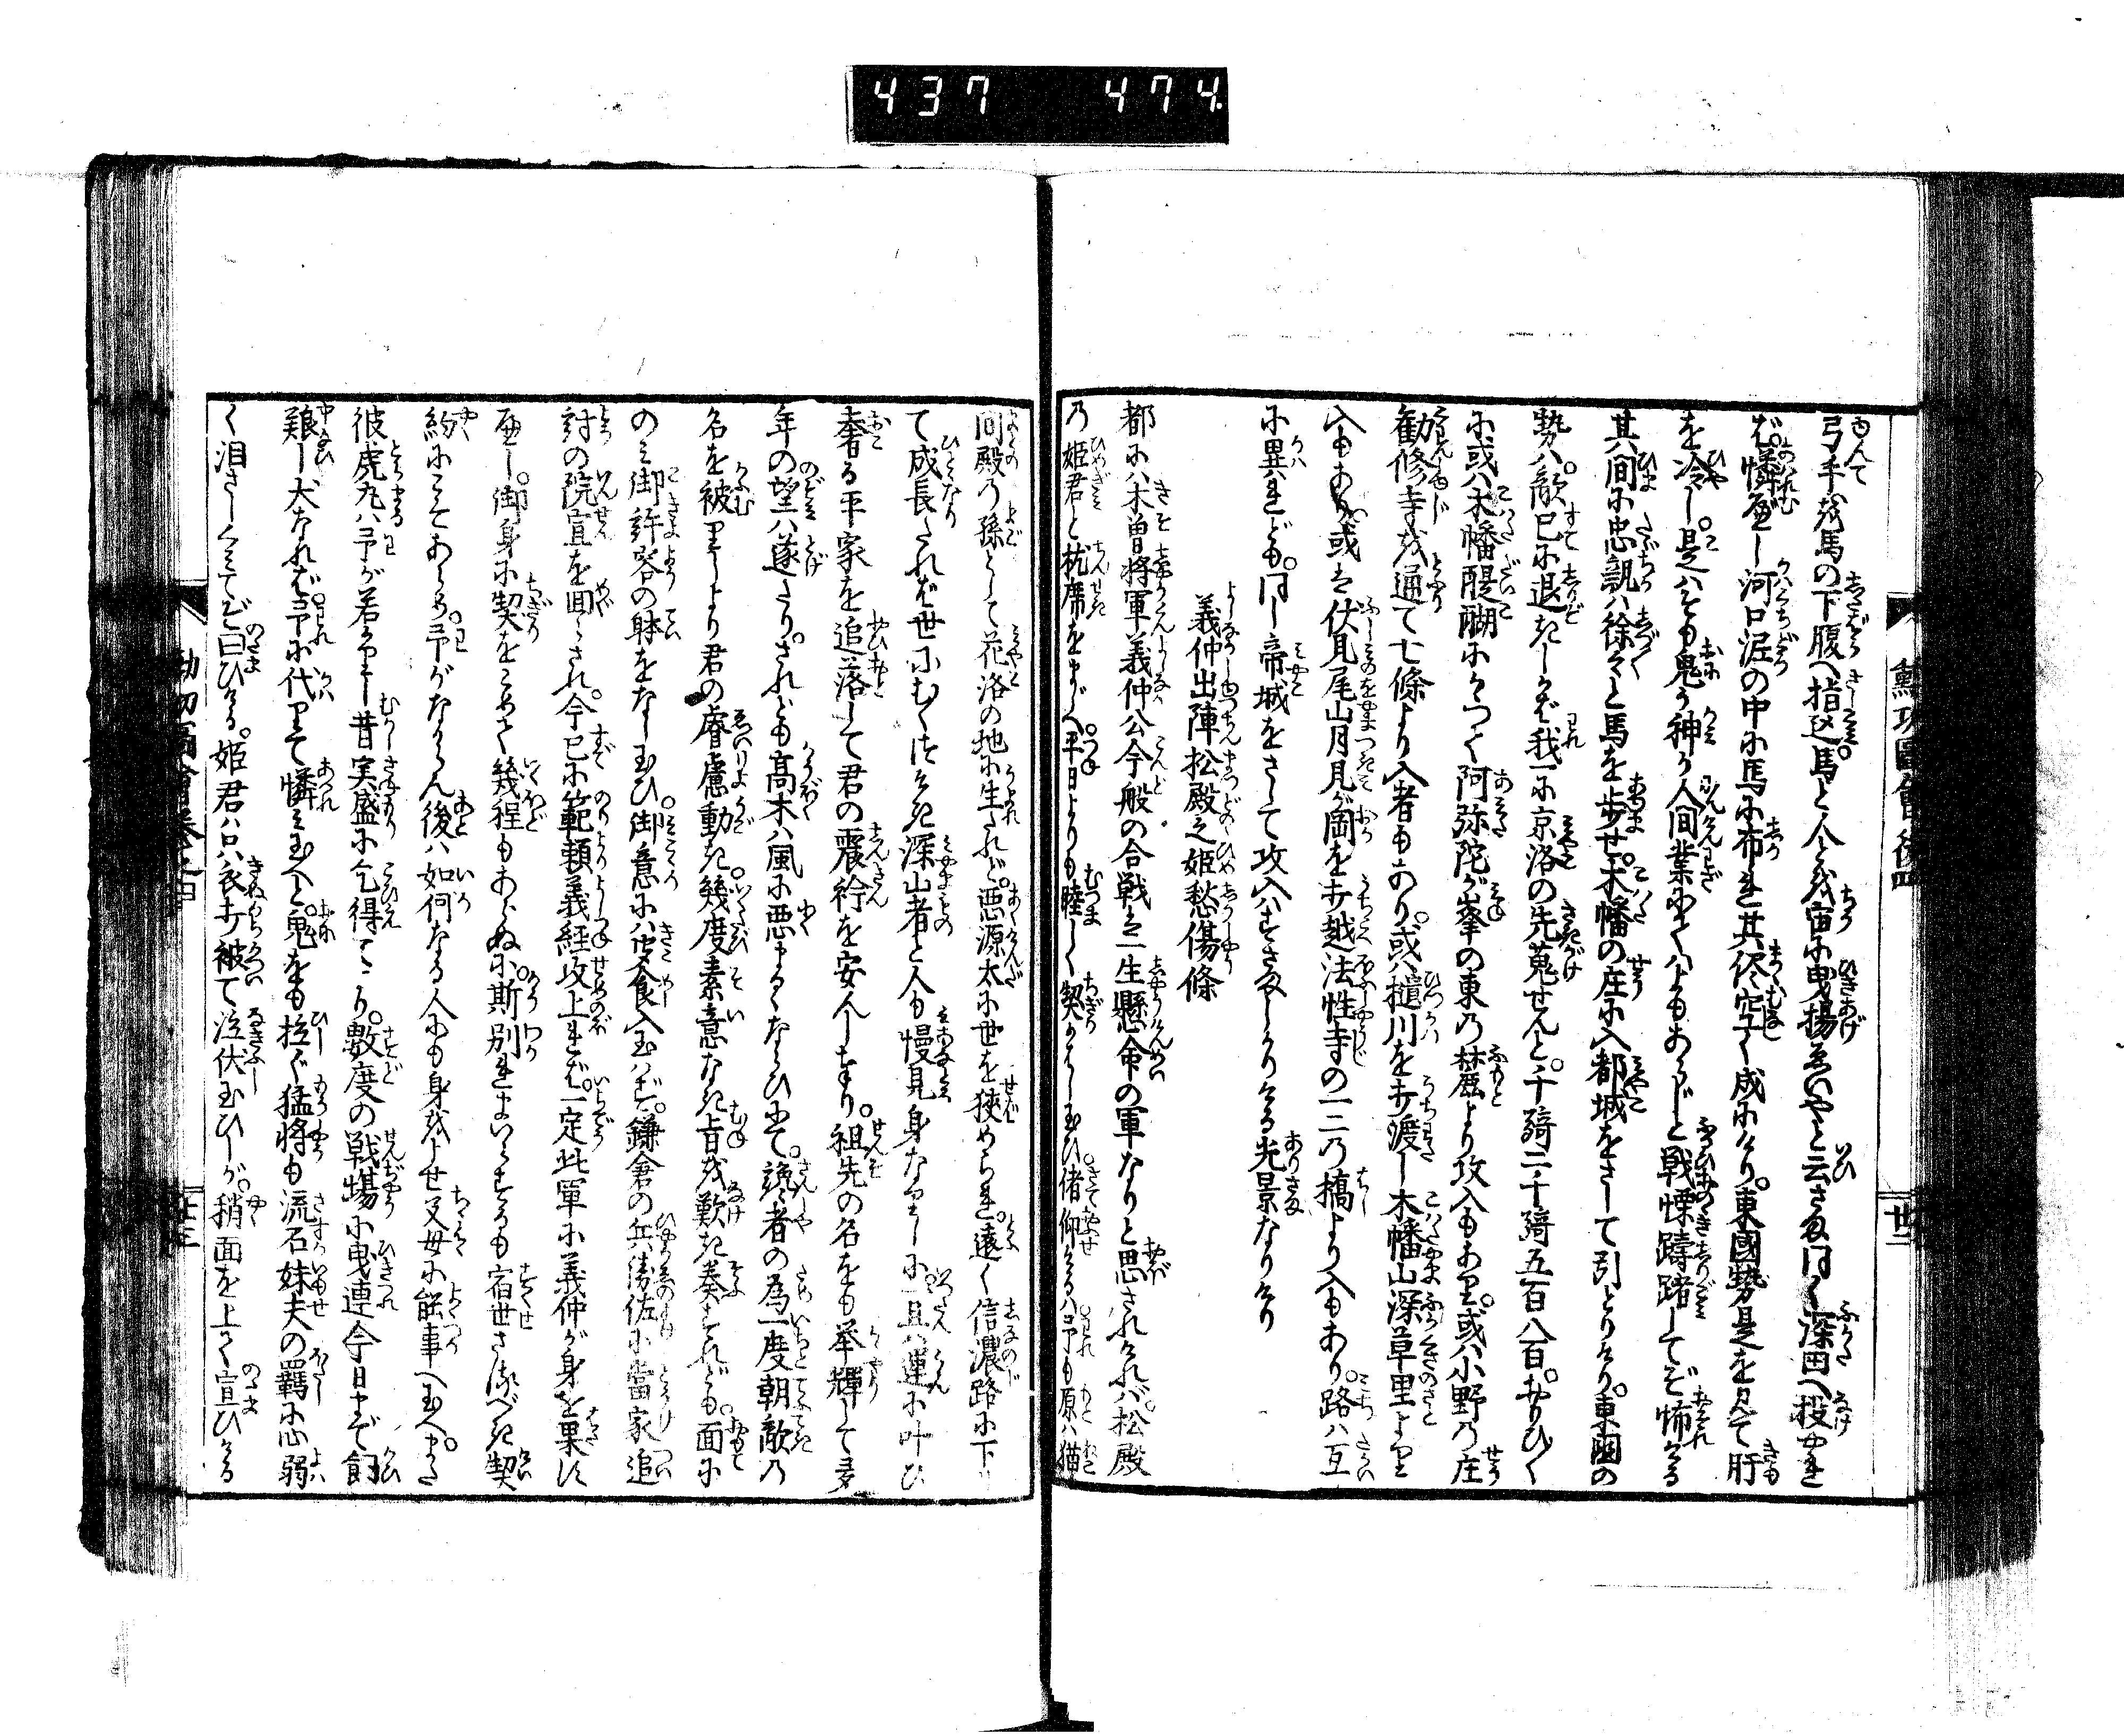 437 474.
弓手を馬の下腹へ指込。馬と人とを宙に曳揚ゑいやと云さま同く深田へ投やれ
ば。憐べし河口泥の中に馬に布れ其侭空く成にけり。東國勢是を見て肝
を冷し。是はそも鬼か神か人間業にてはよもあらじと戦慄躊躇してぞ怖ける
其間に忠親は徐々と馬を歩せ。木幡の庄に入都城をさして引とりけり。東国の
勢は。敵已に退きしかば我一に京洛の先蒐せんと。千騎二千騎五百八百。おもひ〳〵
に或は木幡醍醐にかゝつて阿弥陀が峯の東の麓より攻入もあり。或は小野の庄
勧修寺を通て七條より入者もあり。或は櫃川を打渡し木幡山深草里より
入もあり。或は伏見尾山月見が岡を打越法性寺の一二の橋より入もあり。路は互
に異れども。同じ帝城をさして攻入けるありける光景なりけり
義仲出陣松殿之姫愁傷條
都には木曽将軍義仲公今般の合戦は一生懸命の軍なりと思されければ。松殿
の姫君と枕席をまじへ。平日よりも睦しく契かはし玉ひ。偖仰けるは。予も原は猫
間殿の孫として花洛の地に生れしが。悪源太に世を狭められ。遠く信濃路に下
て成長たれば世にむくつけき深山者と人も慢見身なりしに。一旦は運に叶ひ
奢る平家を追落して君の震衿を安んじ奉り。祖先の名をも挙輝して多
年の望は遂たり。されども高木は風に悪まるゝならひにて。讒者の為一度朝敵の
名を被りしより君の睿慮動き。幾度素意なき旨を歎き奏すれども。面に
のミ御許容の躰をなし玉ひ。御意には曽て食入玉はず。鎌倉の兵衛佐に當家追
討の院宣を回らされ。今已に範頼義経攻上れば。一定此軍に義仲が身を果す
べし。御身に契をこめて幾程もあらぬに。斯別れまいらするも宿世さだまるべき契
約にこそあらめ。予がなからん後は如何なる人にも身をよせ父母に能事へ玉へ。また
彼虎丸は予が若かりし昔実盛に乞得てより。數度の戦場に曳連今日まで飼
馴し犬なれば。予に代りて憐み玉へと。鬼をも拉ぐ猛将も流石妹夫の羈に心弱
く泪さしぐみてぞ曰ひける。姫君は只衣打被て泣伏玉ひしが。稍面を上て宣ひける